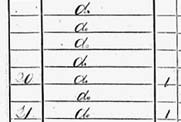 do.
do.
do.
do.
20 do. 1
do.
21 do. 1